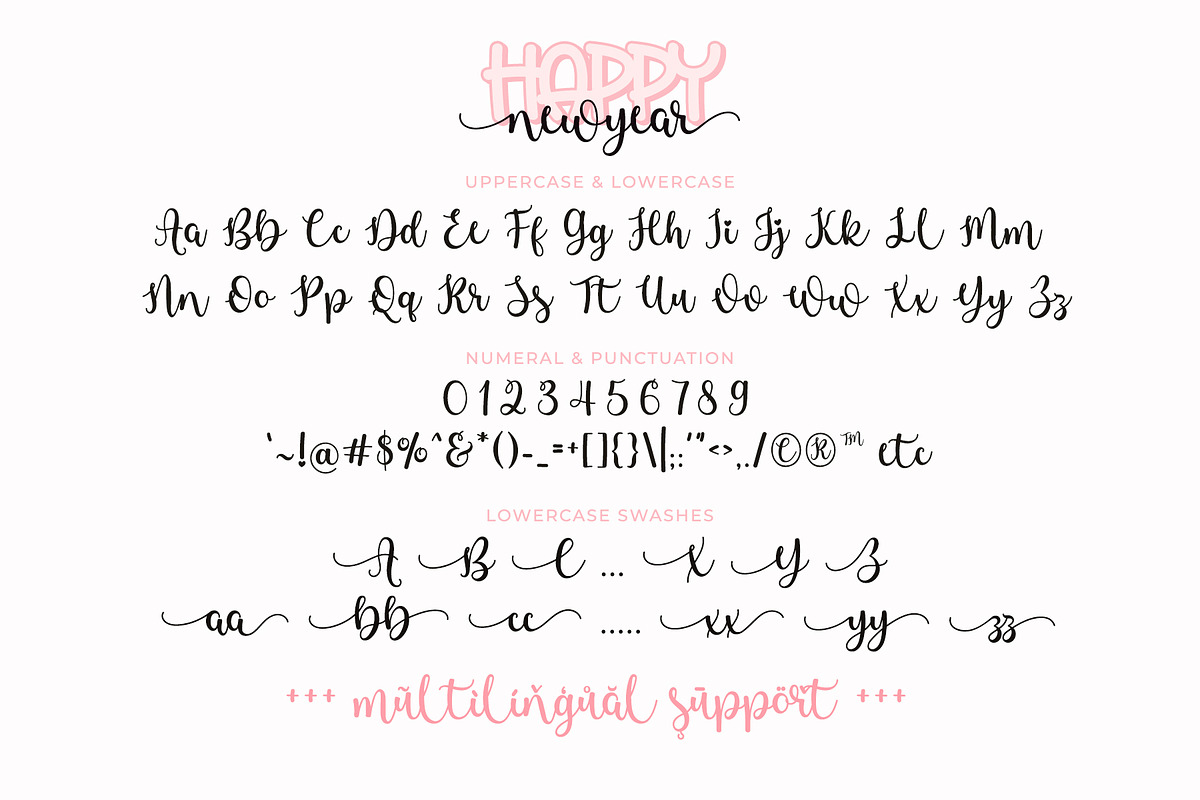 HAPPY
newyear
UPPERCASE & LOWERCASE
Aa Bb Cc Dd Ee Ff Gg Hh Ii Jj Kk Ll Mm
Nn Oo Pp Qq Rr Ss Tt Uu Vv Ww Xx Yy Zz
NUMERAL & PUNCTUATION
0123456789
`~!@#$%^&*()-_=+[]{}\|;:'"<>,./©®™ etc
LOWERCASE SWASHES
A B C ... X Y Z
aa bb cc ..... xx yy zz
+++ mũltilíňģůăl şūppöřt +++